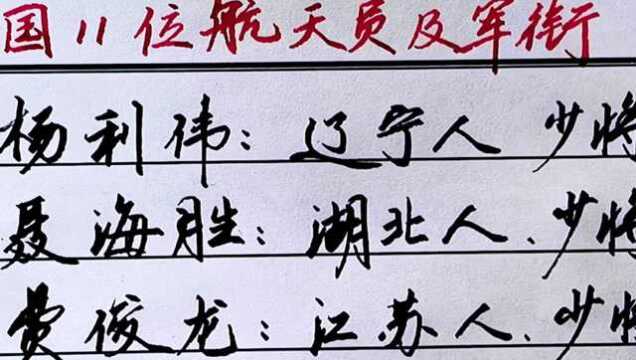 国11位航天员及军衔
杨利伟：辽宁人 少将
聂海胜：湖北人、少将
费俊龙：江苏人、少将